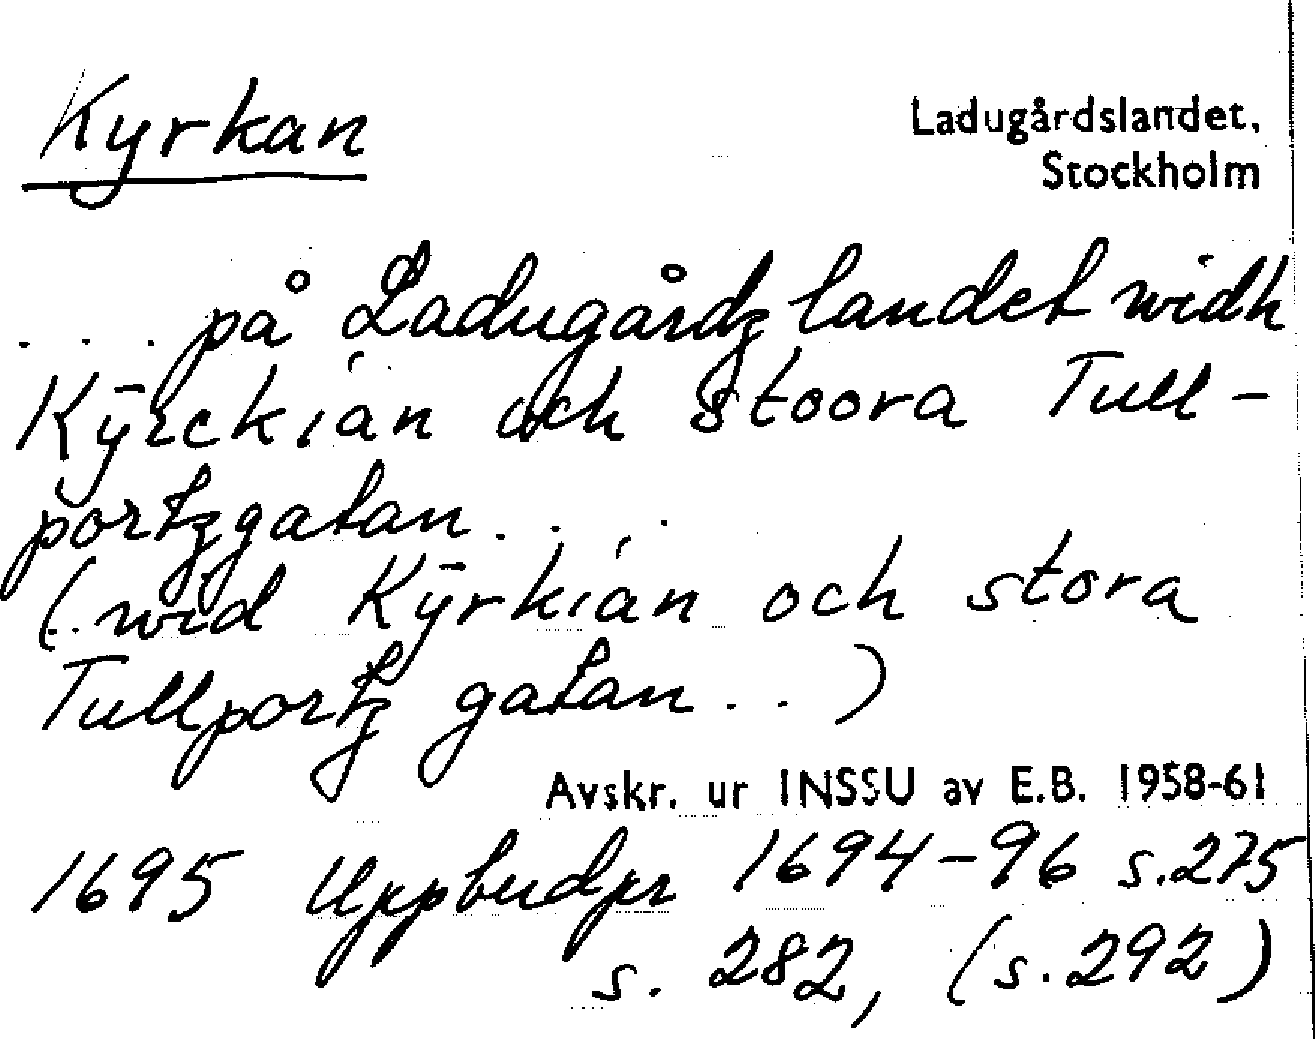 Kyrkan
Ladugårdslandet,
Stockholm
. . . på Ladugårdz landet widh
Kÿrckian och stoora Tull-
portzgatan . . .
(. wid Kÿrkian och stora
Tullportz gatan . . )
Avskr. ur INSSU av E.B. 1958-61
1695 Uppbudpr 1694-96 s.275
s. 282, (s.292)